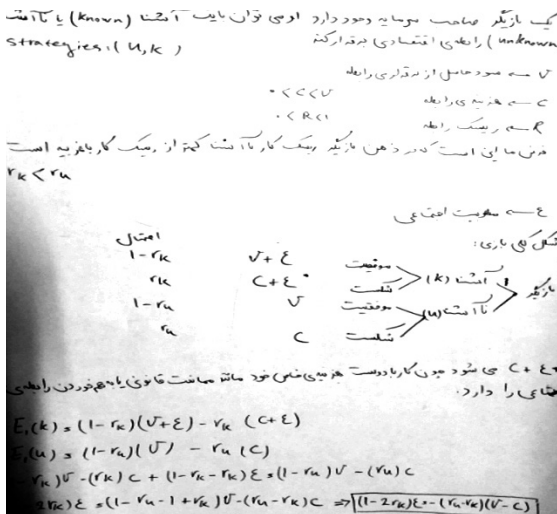 یک بازیگر صاحب سرمایه وجود دارد او می توان با یک آشنا (known) یا ناآشنا
(unknown) رابطه ی اقتصادی برقرار کند strategies: (u,k)
v → سود حاصل از برقراری رابطه
c → هزینه ی رابطه 0<c<v
R → ریسک رابطه 0<R<1
فرض ما این است که در ذهن بازیگر ریسک کار با آشنا کمتر از ریسک کار با غریبه است
rk < ru
ε → اجتماعی
شکل کلی بازی:
احتمال
1-rk v+ε موفقیت
rk c+ε شکست آشنا (k)
بازیگر 1
1-ru v موفقیت ناآشنا (u)
ru c شکست
c+ε می شود چون کار با دوست هزینه ی خاص خود مانند قانونی یا به هم خوردن رابطه ی
را دارد.
E₁(k) = (1-rk)(v+ε) - rk (c+ε)
E₁(u) = (1-ru)(v) - ru (c)
-rk)v - (rk)c + (1-rk-rk)ε = (1-ru)v - (ru)c
-2rk)ε = (1-ru-1+rk)v - (ru-rk)c ⇒ (1-2rk)ε = -(ru-rk)(v-c)